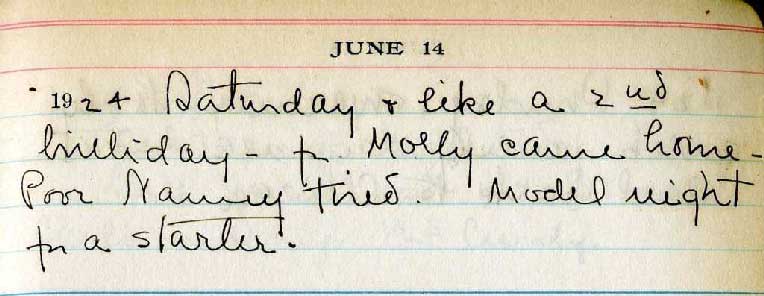 JUNE 14
1924 Saturday & like a 2nd
birthday - for Molly came home -
Poor Nanny tired. Model night
for a starter.